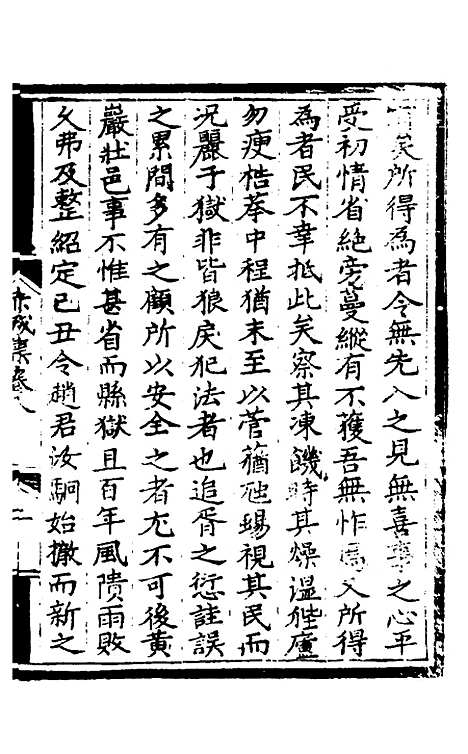 矣所得為者令無先入之見無喜事之心平
受初情省絕旁蔓縱有不獲吾無怍焉又所得
為者民不幸抵此矣察其凍饑時其燥溫狴廬
勿瘐梏拲中程猶未至以菅蒩虺蜴視其民而
況麗于獄非皆狼戾犯法者也追胥之愆詿誤
之累間多有之顧所以安全之者尤不可後黃
嚴壯邑事不惟甚省而縣獄且百年風隤雨敗
久弗及整紹定己丑令趙君汝駉始撤而新之
赤城集卷八
二